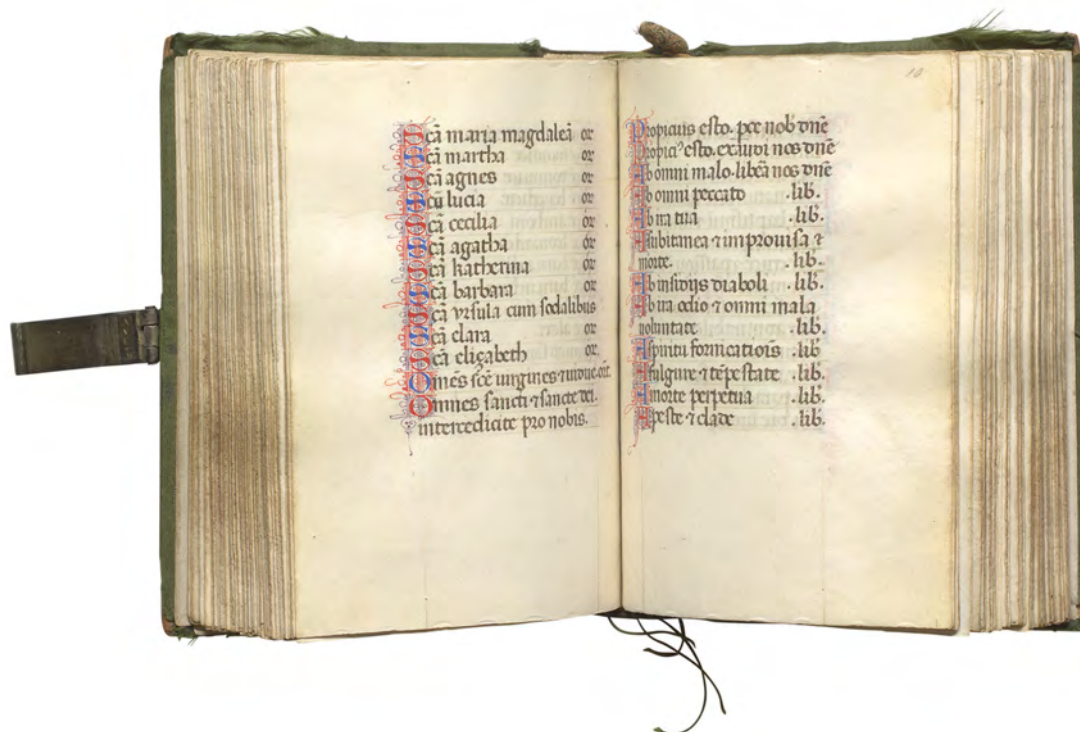 Scā maria magdaleā or
Scā martha or
Scā agnes or
Scā lucia or
Scā cecilia or
Scā agatha or
Scā katherina or
Scā barbara or
Scā vrsula cum sodalibus
Scā clara or
Scā elizabeth or.
Omēs scē uirgines ⁊ uidue. ort.
Omnes sancti ⁊ sancte dei.
intercedite pro nobis.
10
Propicius esto. pce nob dnē
Propiciꝰ esto. exaudi nos dnē
Ab omni malo. libēa nos dnē
Ab omni peccato .lib.
Ab ira tua .lib.
A subitanea ⁊ improuisa ⁊
morte. .lib.
Ab insidijs diaboli .lib.
Ab ira odio ⁊ omni mala
uoluntate .lib.
A spiritu fornicatiōis .lib
A fulgure ⁊ tēpestate .lib.
A morte perpetua .lib.
A peste ⁊ clade .lib.